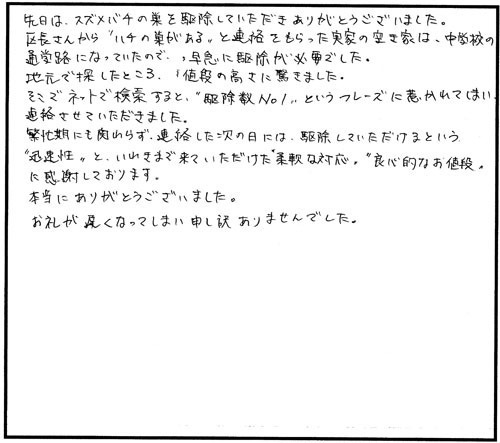 先日は、スズメバチの巣を駆除していただきありがとうございました。
区長さんから"ハチの巣がある"と連絡をもらった実家の空き家は、中学校の
通学路になっていたので、早急に駆除が必要でした。
地元で探したところ、値段の高さに驚きました。
そこでネットで検索すると、"駆除数No1"というフレーズに惹かれてしまい
連絡させていただきました。
繁忙期にも関わらず、連絡した次の日には、駆除していただけるという
"迅速性"と、いわきまで来ていただけた"柔軟な対応"、"良心的なお値段"
に感謝しております。
本当にありがとうございました。
お礼が遅くなってしまい申し訳ありませんでした。